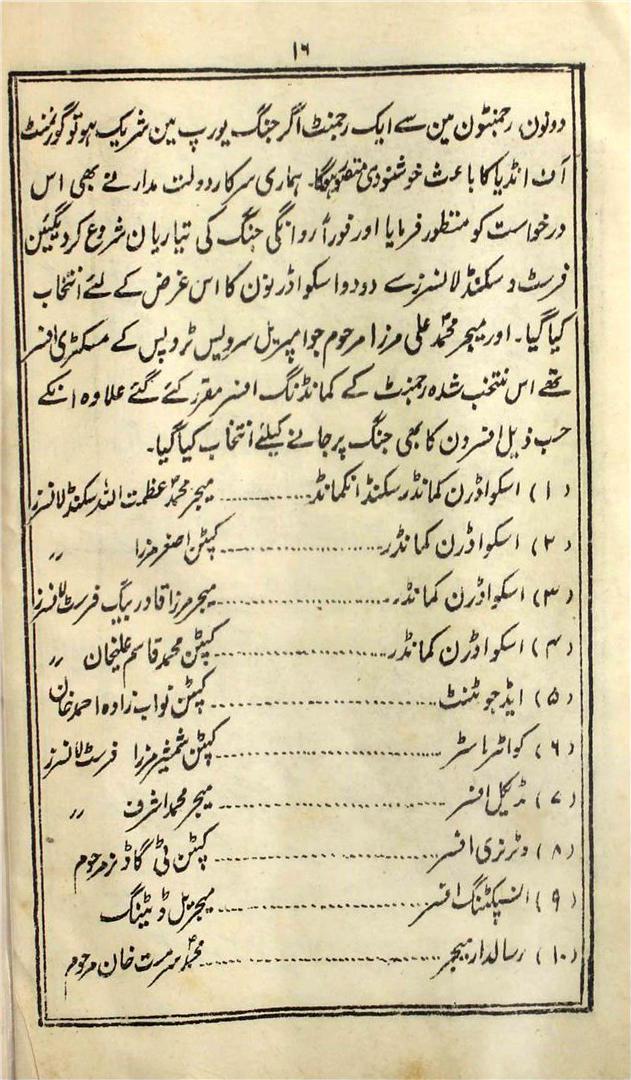 ۱۶
دونون رجمنٹون مین سے ایک رجمنٹ اگر جنگ یورپ مین شریک ہو تو گورنمنٹ
آف انڈیا کا باعث خوشنودی متصور ہوگا۔ ہماری سرکار دولت مدار نے بھی اس
درخواست کو منظور فرمایا اور فوراً روانگی جنگ کی تیاریان شروع کردیگئین
فرسٹ و سکنڈ لانسرز سے دو دو اسکواڈرنون کا اس غرض کے لئے انتخاب
کیا گیا۔ اور میجر محمد علی مرزا مرحوم جو امپریل سرویس ٹروپس کے مسکٹری افسر
تھے اس منتخب شدہ رجمنٹ کے کمانڈنگ افسر مقرر کئے گئے علاوہ انکے
حسب ذیل افسرون کا بھی جنگ پر جانے کیلئے انتخاب کیا گیا۔
(۱) اسکواڈرن کمانڈر سکنڈ انکمانڈ ........ میجر محمد عظمت اللہ سکنڈ لانسرز
(۲) اسکواڈرن کمانڈر ........ کپٹن اصغر مرزا 〃
(۳) اسکواڈرن کمانڈر ........ میجر مرزا قادر بیگ فرسٹ لانسرز
(۴) اسکواڈرن کمانڈر ........ کپٹن محمد قاسم علیخان 〃
(۵) ایڈجوٹنٹ ........ کپٹن نواب زادہ احمد خان
(۶) کواٹر ماسٹر ........ کپٹن شمشیر مرزا فرسٹ لانسرز
(۷) مڈیکل افسر ........ میجر محمد اشرف 〃
(۸) وٹرنری افسر ........ کپٹن ٹی گاڈنز مرحوم
(۹) انسپکٹنگ افسر ........ میجر بل و ٹینگ
(۱۰) رسالدار میجر ........ محمد سرمت خان مرحوم